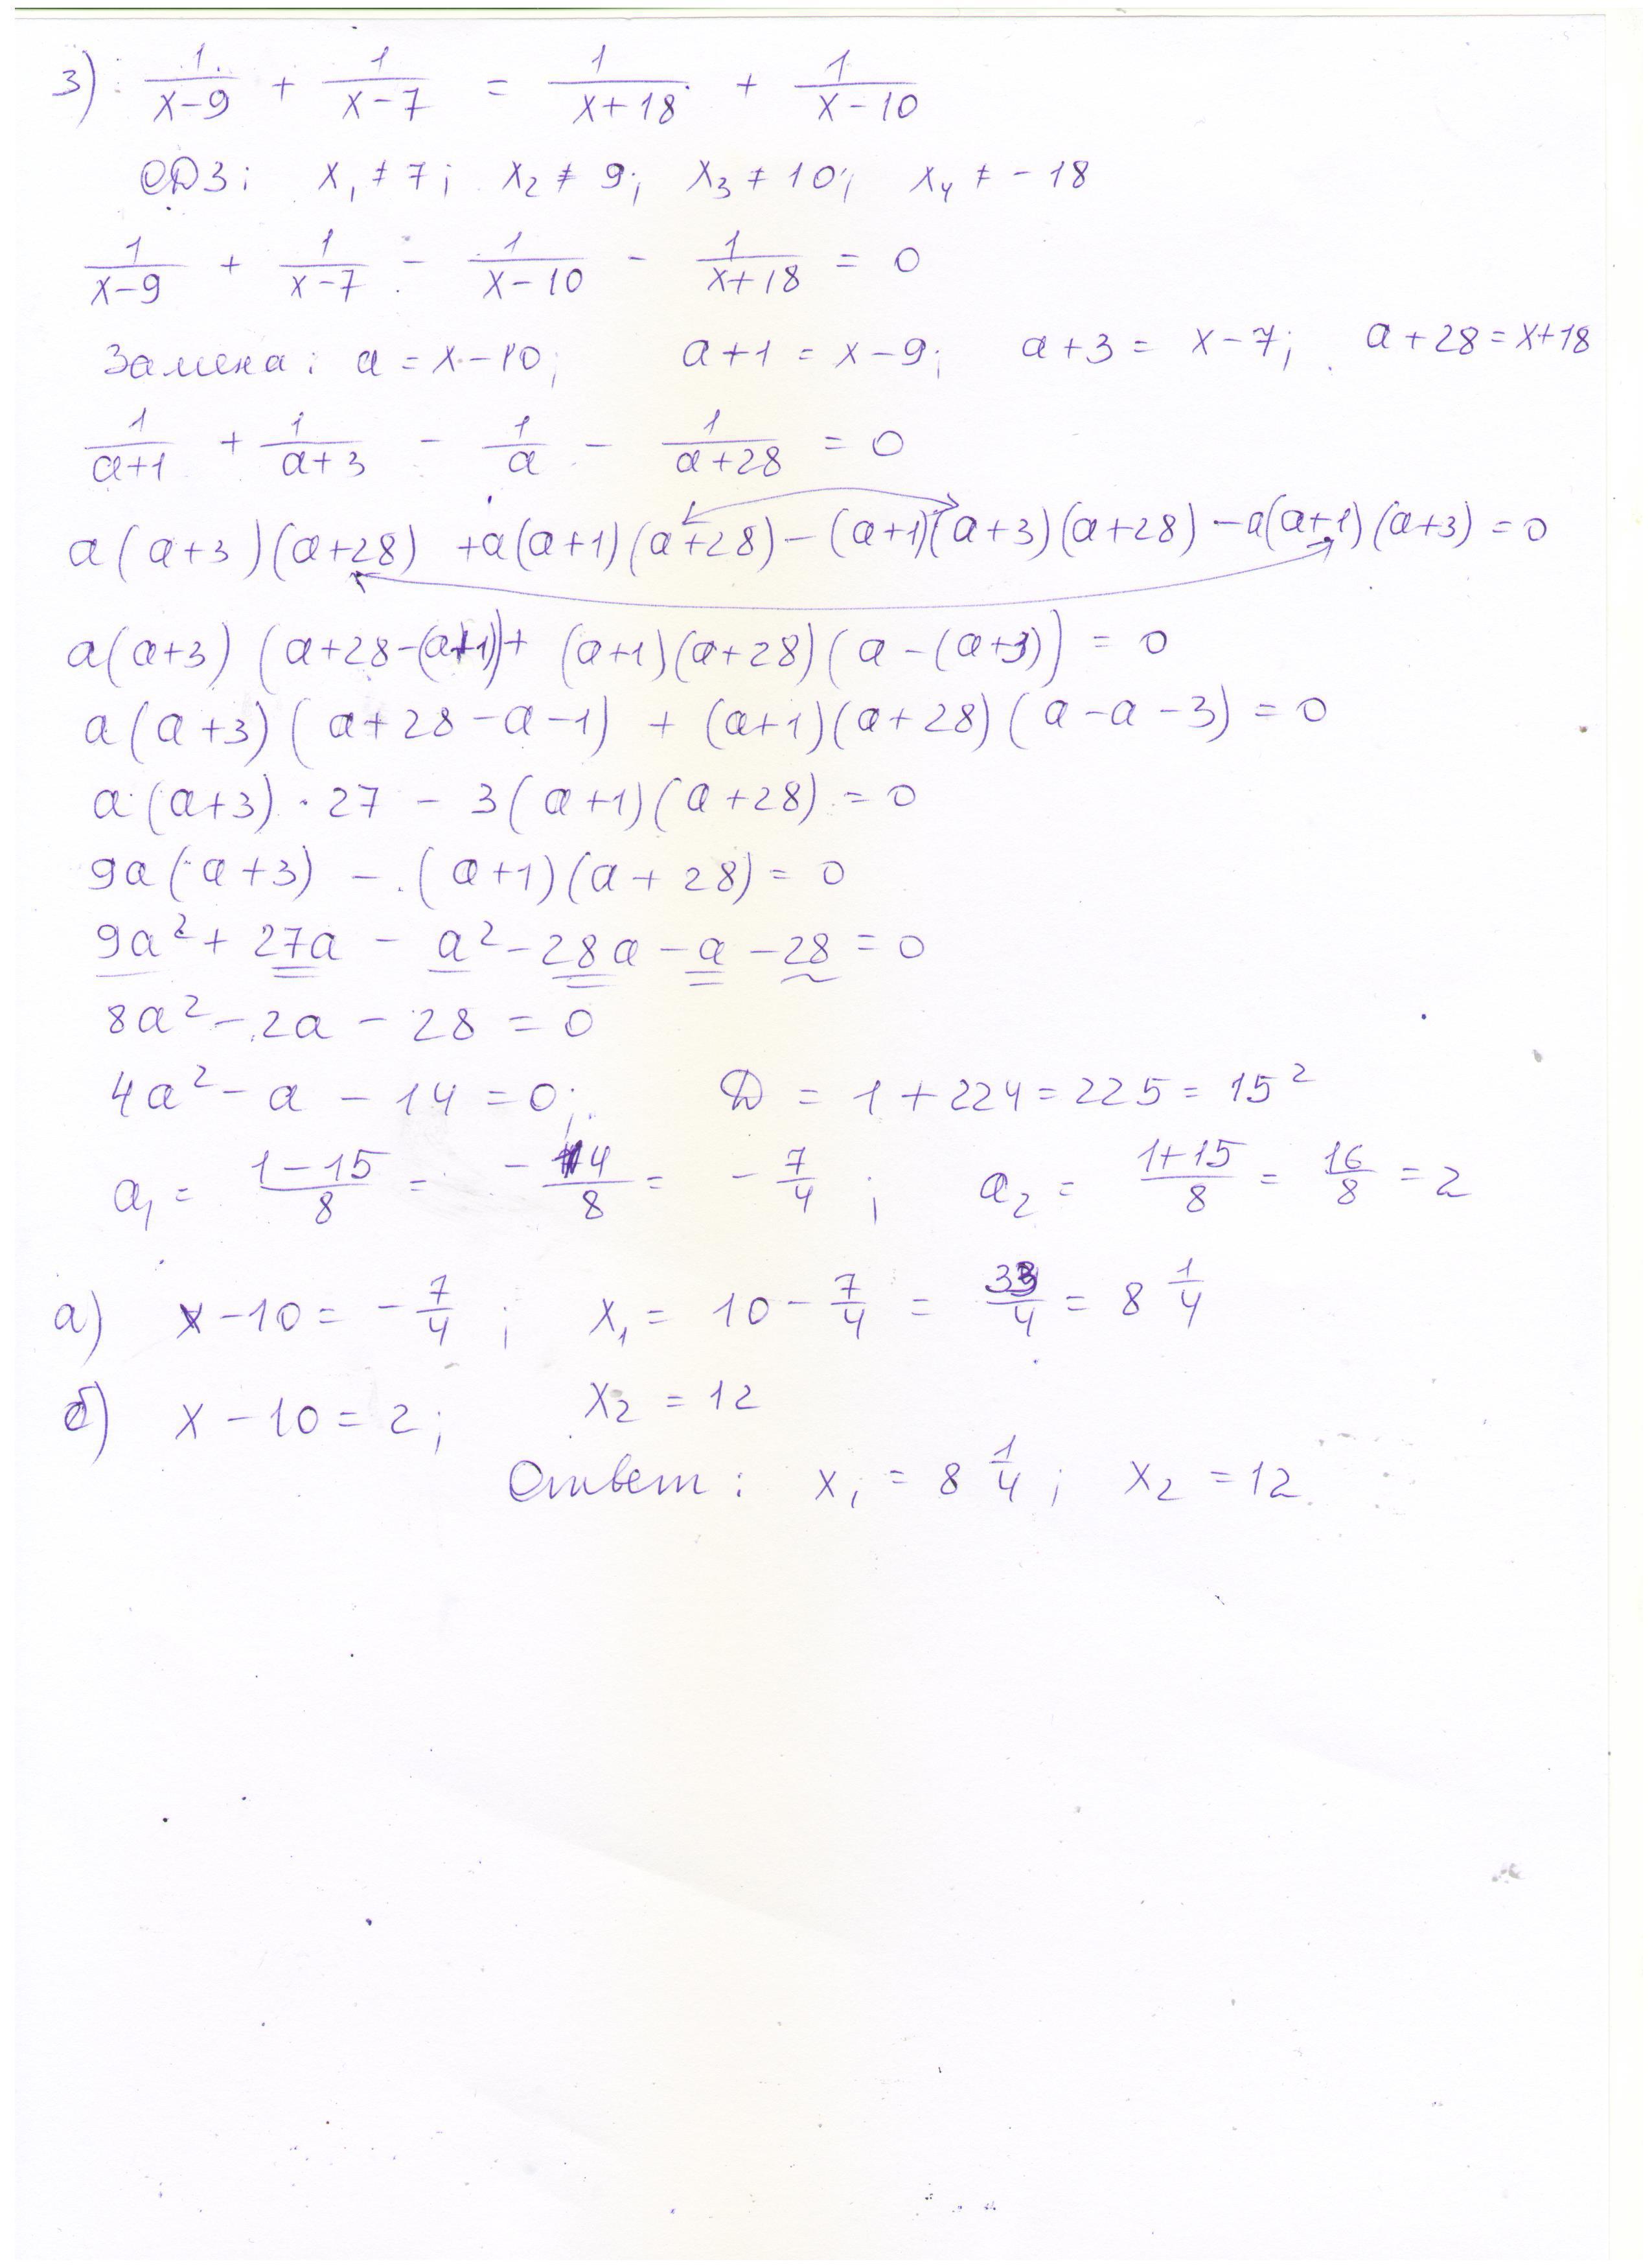 3) 1/(x-9) + 1/(x-7) = 1/(x+18) + 1/(x-10)
ОДЗ: x₁ ≠ 7; x₂ ≠ 9; x₃ ≠ 10; x₄ ≠ -18
1/(x-9) + 1/(x-7) - 1/(x-10) - 1/(x+18) = 0
Замена: a = x-10; a+1 = x-9; a+3 = x-7; a+28 = x+18
1/(a+1) + 1/(a+3) - 1/a - 1/(a+28) = 0
a(a+3)(a+28) + a(a+1)(a+28) - (a+1)(a+3)(a+28) - a(a+1)(a+3) = 0
a(a+3)(a+28-(a+1)) + (a+1)(a+28)(a-(a+3)) = 0
a(a+3)(a+28-a-1) + (a+1)(a+28)(a-a-3) = 0
a(a+3)·27 - 3(a+1)(a+28) = 0
9a(a+3) - (a+1)(a+28) = 0
9a² + 27a - a² - 28a - a - 28 = 0
8a² - 2a - 28 = 0
4a² - a - 14 = 0; D = 1 + 224 = 225 = 15²
a₁ = (1-15)/8 = -14/8 = -7/4; a₂ = (1+15)/8 = 16/8 = 2
а) x-10 = -7/4; x₁ = 10 - 7/4 = 33/4 = 8 1/4
б) x-10 = 2; x₂ = 12
Ответ: x₁ = 8 1/4; x₂ = 12